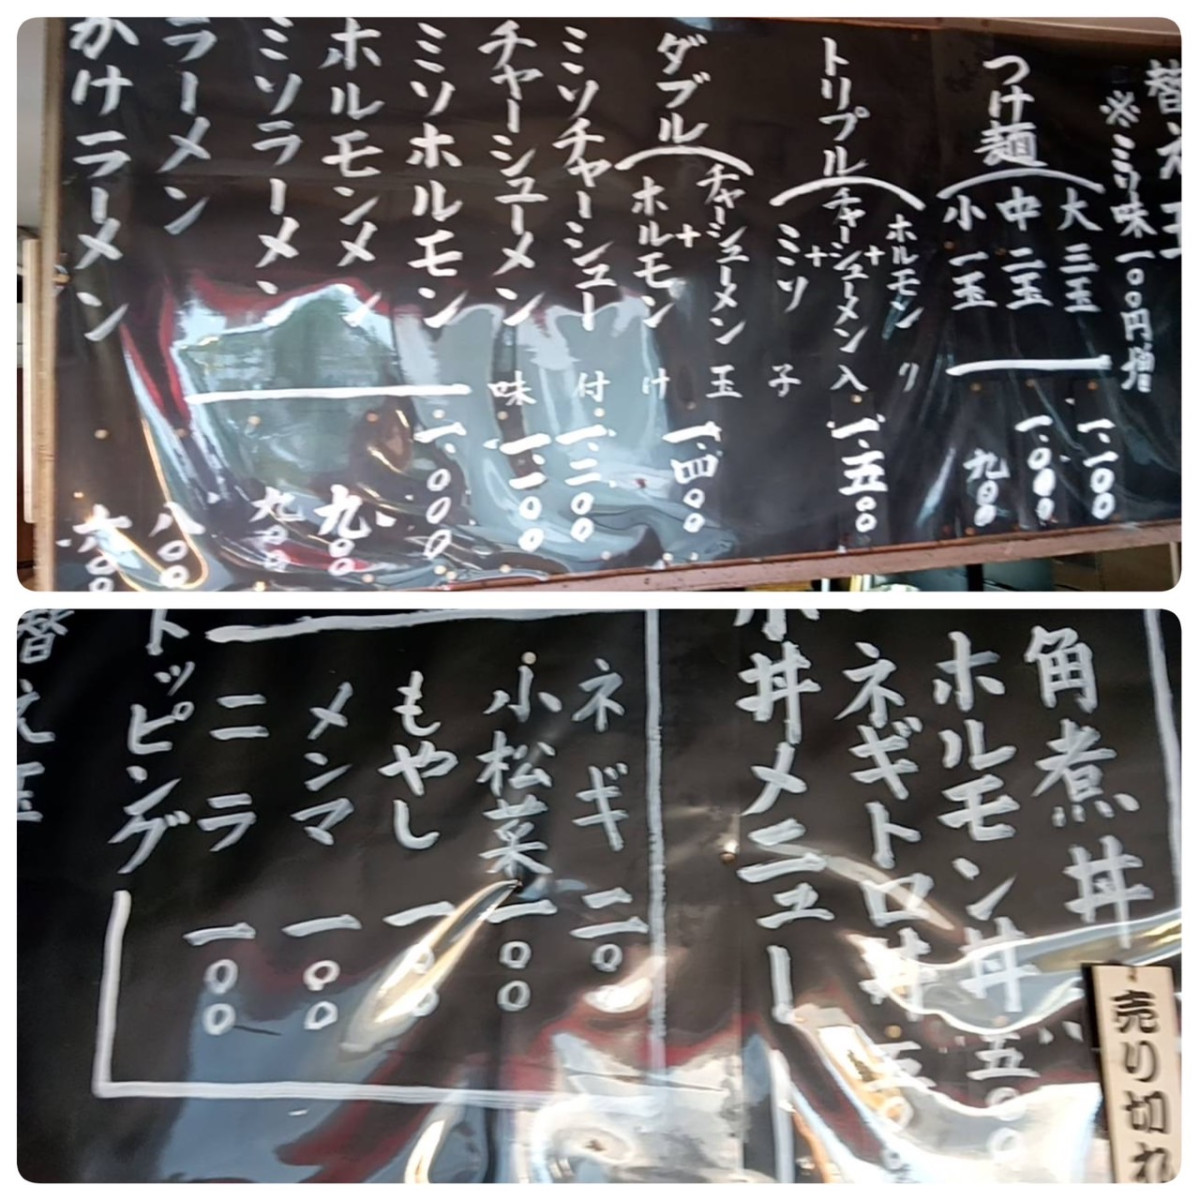 替え玉
※ミソ味一〇〇円増
つけ麺
大 三玉 一、一〇〇
中 二玉 一、〇〇〇
小 一玉 九〇〇
トリプル
ホルモン
+
チャーシューメン
+
ミソ
一、五〇〇
ダブル
チャーシューメン
+
ホルモン
一、四〇〇
ミソチャーシュー 一、二〇〇
チャーシューメン 一、一〇〇
ミソホルモン 一、〇〇〇
ホルモンメン 九〇〇
ミソラーメン 九〇〇
ラーメン 八〇〇
かけラーメン 六〇〇
味付け玉子入り
角煮丼
売り切れ
ホルモン丼 五〇〇
ネギトロ丼 五〇
小丼メニュー
ネギ 二〇
小松菜 一〇〇
もやし 一〇〇
メンマ 一〇〇
ニラ 一〇〇
トッピング
替え玉